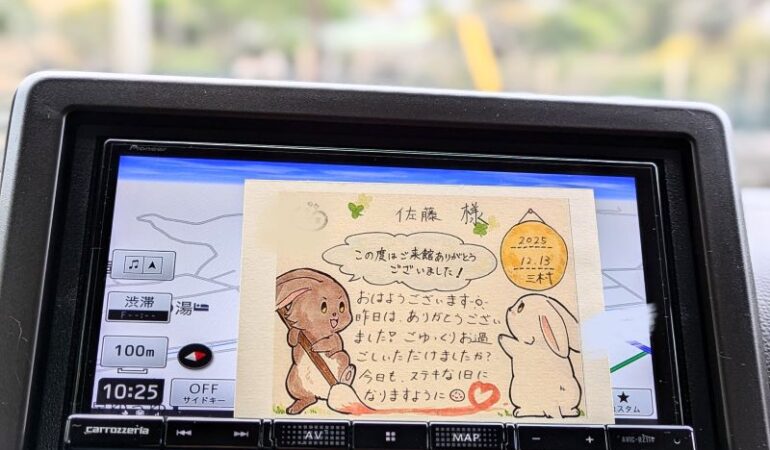 Pioneer
佐藤 様
2025
12.13
三村
この度はご来館ありがとう
ございました!
おはようございます。
昨日は、ありがとうござい
ました。ごゆっくりお過
ごしいただけましたか?
今日も、ステキな1日に
なりますように
渋滞
湯
100m
10:25
OFF
サイドキー
スタム
carrozzeria
AV
MAP